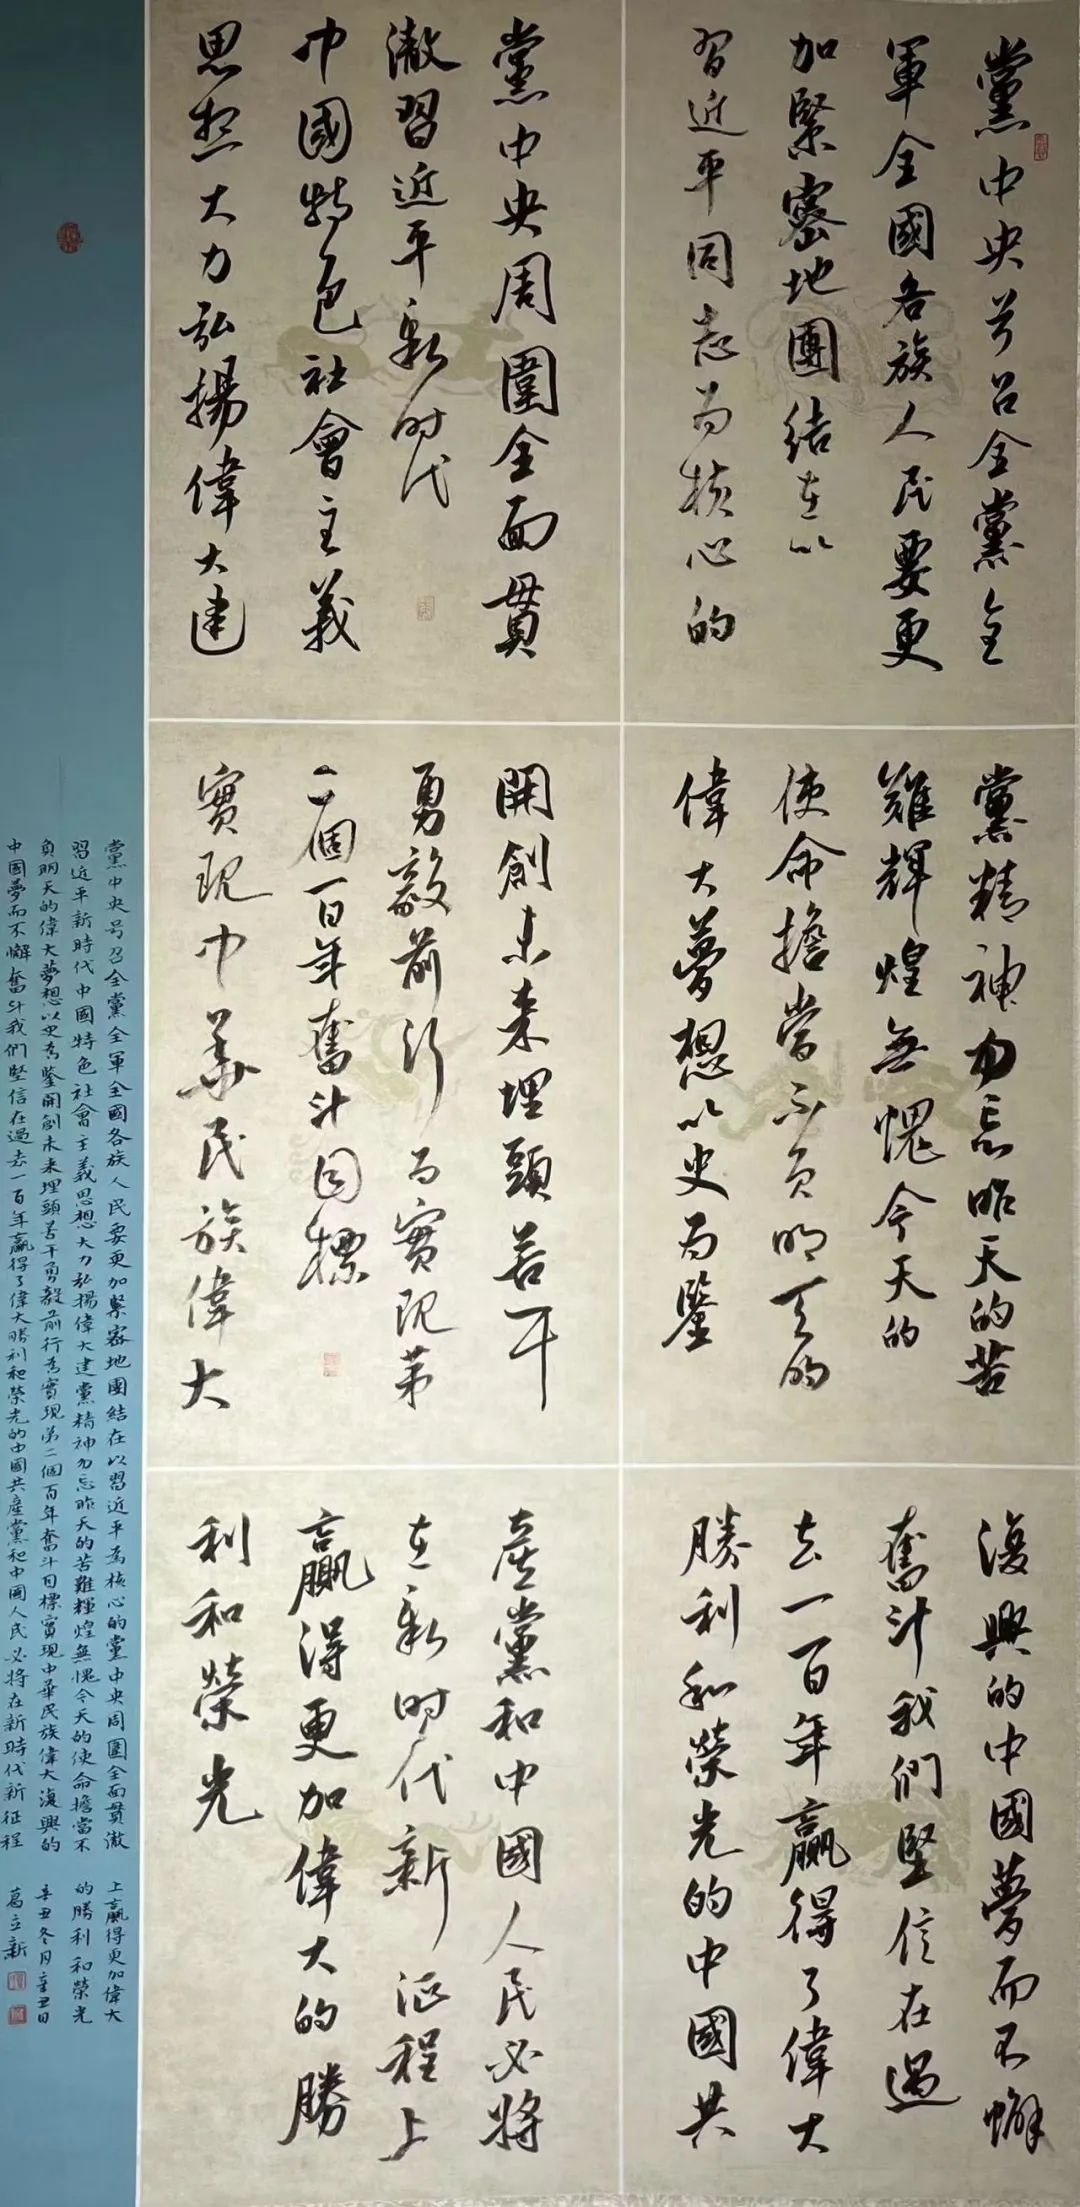 黨中央号召全黨全
軍全國各族人民要更
加緊密地團結在以
習近平同志为核心的
黨中央周圍全面貫
澈習近平新时代
中國特色社會主義
思想大力弘揚偉大建
黨精神勿忘昨天的苦
難輝煌無愧今天的
使命擔當不負明天的
偉大夢想以史为鑒
開創未来埋頭苦干
勇毅前行为實現苐
二個一百年奮斗目標
實現中華民族偉大
復興的中國夢而不懈
奮斗我們堅信在過
去一百年贏得了偉大
勝利和榮光的中國共
產黨和中國人民必將
在新时代新征程上
贏得更加偉大的勝
利和榮光
黨中央号召全黨全軍全國各族人民要更加緊密地團結在以習近平為核心的黨中央周圍全面貫澈
習近平新時代中國特色社會主義思想大力弘揚偉大建黨精神勿忘昨天的苦難輝煌無愧今天的使命擔當不
負明天的偉大夢想以史為鑒開創未来埋頭苦干勇毅前行為實現第二個百年奮斗目標實現中華民族偉大復興的
中國夢而不懈奮斗我們堅信在過去一百年贏得了偉大勝利和榮光的中國共產黨和中國人民必將在新時代新征程
上贏得更加偉大
的勝利和榮光
辛丑冬月辛丑日
葛立新